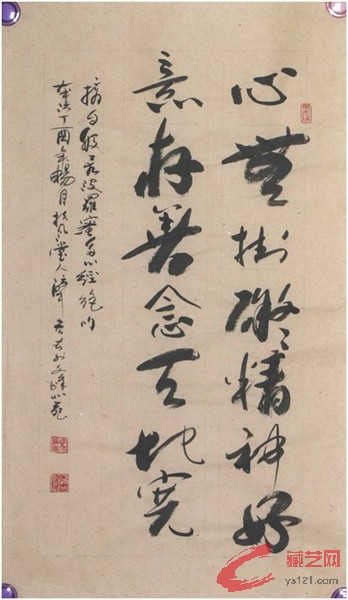 心无挂碍精神好
意存善念天地宽
摘句般若波罗蜜多心经绝句
岁次丁酉年杨月
藏艺网
ys121.com